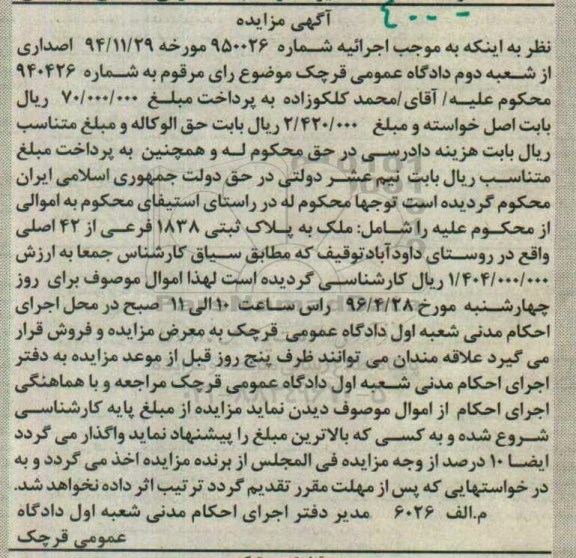 آگهی مزایده
نظر به اینکه به موجب اجرائیه شماره ۹۵۰۰۲۶ مورخه ۹۴/۱۱/۲۹ اصداری
از شعبه دوم دادگاه عمومی قرچک موضوع رای مرقوم به شماره ۹۴۰۴۲۶
محکوم علیه/ آقای/محمد کلکوزاده به پرداخت مبلغ ۷۰/۰۰۰/۰۰۰ ریال
بابت اصل خواسته و مبلغ ۲/۴۲۰/۰۰۰ ریال بابت حق الوکاله و مبلغ متناسب
ریال بابت هزینه دادرسی در حق محکوم له و همچنین به پرداخت مبلغ
متناسب ریال بابت نیم عشر دولتی در حق دولت جمهوری اسلامی ایران
محکوم گردیده است توجها محکوم له در راستای استیفای محکوم به اموالی
از محکوم علیه را شامل: ملک به پلاک ثبتی ۱۸۳۸ فرعی از ۴۲ اصلی
واقع در روستای داودآباد توقیف که مطابق سیاق کارشناس جمعا به ارزش
۱/۴۰۴/۰۰۰/۰۰۰ ریال کارشناسی گردیده است لهذا اموال موصوف برای روز
چهارشنبه مورخ ۹۶/۴/۲۸ راس ساعت ۱۰ الی ۱۱ صبح در محل اجرای
احکام مدنی شعبه اول دادگاه عمومی قرچک به معرض مزایده و فروش قرار
می گیرد علاقه مندان می توانند ظرف پنج روز قبل از موعد مزایده به دفتر
اجرای احکام مدنی شعبه اول دادگاه عمومی قرچک مراجعه و با هماهنگی
اجرای احکام از اموال موصوف دیدن نماید مزایده از مبلغ پایه کارشناسی
شروع شده و به کسی که بالاترین مبلغ را پیشنهاد نماید واگذار می گردد
ایضا ۱۰ درصد از وجه مزایده فی المجلس از برنده مزایده اخذ می گردد و به
در خواستهایی که پس از مهلت مقرر تقدیم گردد ترتیب اثر داده نخواهد شد.
م.الف ۶۰۲۶ مدیر دفتر اجرای احکام مدنی شعبه اول دادگاه
عمومی قرچک